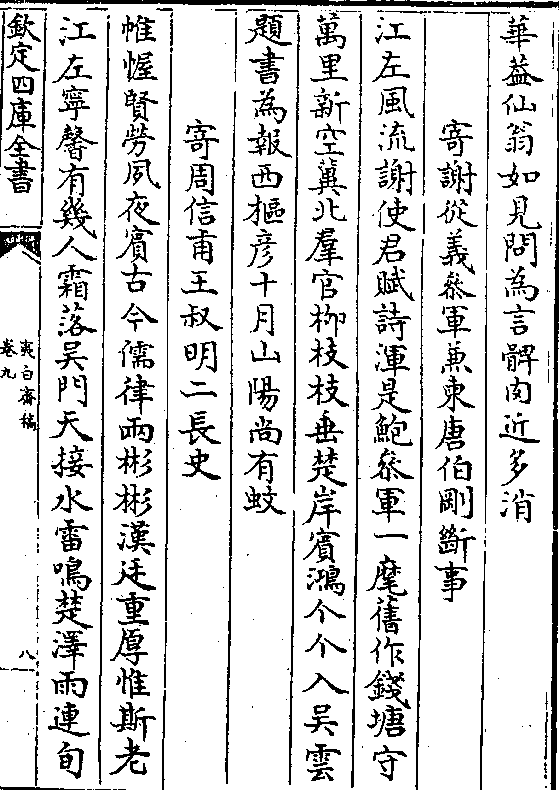 華葢仙翁如見問為言髀肉近多消
寄謝從義叅軍兼柬唐伯剛斷事
江左風流謝使君賦詩渾是鮑叅軍一麾舊作錢塘守
萬里新空冀北羣官柳枝枝垂楚岸賓鴻个个入吴雲
題書為報西樞彦十月山陽尚有蚊
寄周信甫王叔明二長史
帷幄賢勞夙夜賓古今儒律兩彬彬漢廷重厚惟斯老
江左寧馨有幾人霜落吴門天接水雷鳴楚澤雨連旬
欽定四庫全書
夷白齋稿
卷九
八